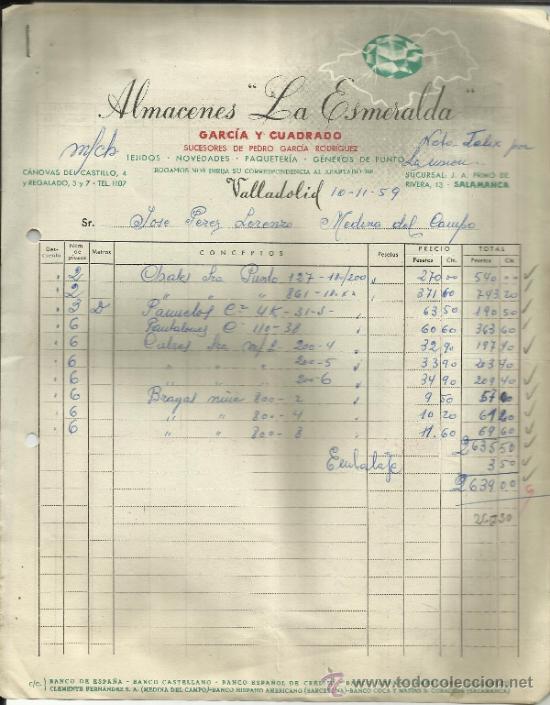 Almacenes "La Esmeralda"
GARCÍA Y CUADRADO
SUCESORES DE PEDRO GARCÍA RODRÍGUEZ
TEJIDOS - NOVEDADES - PAQUETERÍA - GÉNEROS DE PUNTO
ROGAMOS NOS DIRIJA SU CORRESPONDENCIA AL APARTADO
m/ch
CÁNOVAS DEL CASTILLO, 4
y REGALADO, 3 y 7 - TEL. 1107
Nota. Felix por
SUCURSAL: J. A. PRIMO DE
RIVERA, 13 - SALAMANCA
Valladolid 10-11-59
Sr. Jose Perez Lorenzo Medina del Campo
Descuento Núm. de piezas Metros CONCEPTOS Pesetas PRECIO Pesetas Cts. TOTAL Pesetas Cts.
2 Chales Lra Punto 127-12/200 270 00 540 00
2 " " " 861 371 60 743 20
3 D Pañuelos Cª 4K-31-S 63 50 190 50
6 Pantalones C 110-38 60 60 363 60
6 Cubres Lra m/l 200-4 32 90 197 40
6 " " 200-5 33 90 203 40
6 " " 200-6 34 90 209 40
6 Bragas niña 800-2 9 50 57 00
6 " " 800-4 10 20 61 20
6 " " 800-3 11 60 69 60
2635 50
Embalaje 3 50
2639 00
c/c.: BANCO DE ESPAÑA - BANCO CASTELLANO - BANCO ESPAÑOL DE CRÉDITO
CLEMENTE FERNÁNDEZ S. A. (MEDINA DEL CAMPO) - BANCO HISPANO AMERICANO (BARCELONA) - BANCO COCA (SALAMANCA)
todocoleccion.net